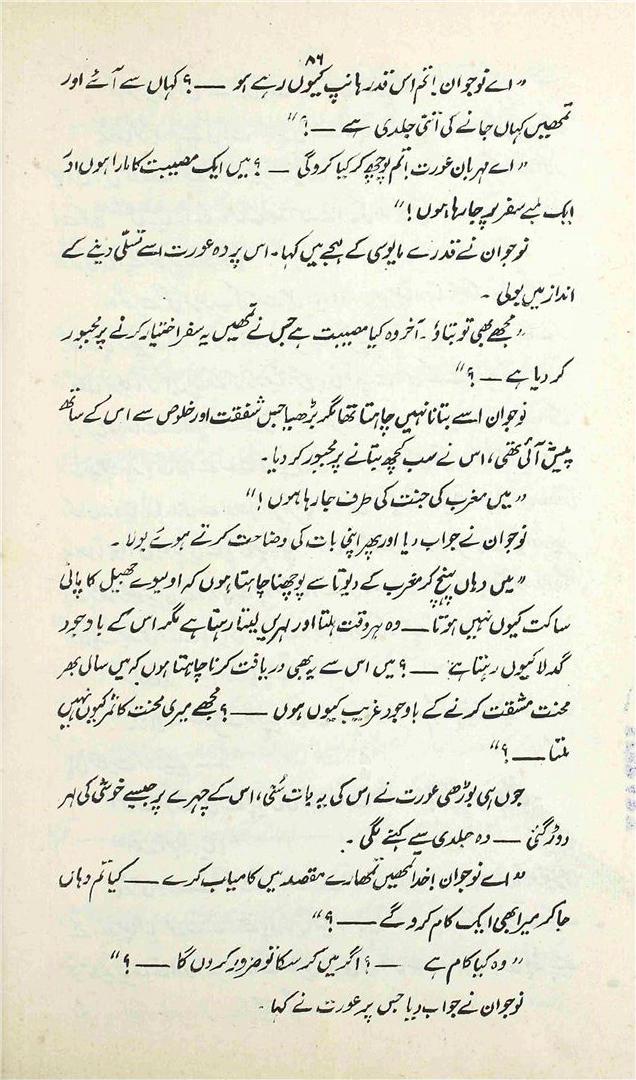 ۸۶
”اے نوجوان! تم اس قدر ہانپ کیوں رہے ہو ــــ؟ کہاں سے آئے اور
تمھیں کہاں جانے کی اتنی جلدی ہے ــــ؟“
”اے مہربان عورت! تم پوچھ کر کیا کرو گی ــــ؟ میں ایک مصیبت کا مارا ہوں اور
ایک لمبے سفر پر جا رہا ہوں!“
نوجوان نے قدرے مایوسی کے لہجے میں کہا۔ اس پر وہ عورت اسے تسلی دینے کے
انداز میں بولی۔
”مجھے بھی تو بتاؤ۔ آخر وہ کیا مصیبت ہے جس نے تمھیں یہ سفر اختیار کرنے پر مجبور
کر دیا ہے ــــ؟“
نوجوان اسے بتانا نہیں چاہتا تھا مگر بڑھیا جس شفقت اور خلوص سے اس کے ساتھ
پیش آئی تھی، اس نے سب کچھ بتانے پر مجبور کر دیا۔
”میں مغرب کی جنت کی طرف جا رہا ہوں!“
نوجوان نے جواب دیا اور پھر اپنی بات کی وضاحت کرتے ہوئے بولا۔
”میں وہاں پہنچ کر مغرب کے دیوتا سے پوچھنا چاہتا ہوں کہ اوسیوے جھیل کا پانی
ساکت کیوں نہیں ہوتا ــــ وہ ہر وقت ہلتا اور لہریں لیتا رہتا ہے مگر اس کے باوجود
گدلا کیوں رہتا ہے ــــ؟ میں اس سے یہ بھی دریافت کرنا چاہتا ہوں کہ میں سال بھر
محنت مشقت کرنے کے باوجود غریب کیوں ہوں ــــ؟ مجھے میری محنت کا ثمر کیوں نہیں
ملتا ــــ؟“
جوں ہی بوڑھی عورت نے اس کی یہ بات سُنی، اس کے چہرے پر جیسے خوشی کی لہر
دوڑ گئی ــــ وہ جلدی سے کہنے لگی۔
”اے نوجوان! خدا تمھیں تمھارے مقصد میں کامیاب کرے ــــ کیا تم وہاں
جا کر میرا بھی ایک کام کرو گے ــــ؟“
”وہ کیا کام ہے ــــ؟ اگر میں کر سکا تو ضرور کر دوں گا ــــ؟“
نوجوان نے جواب دیا جس پر عورت نے کہا۔